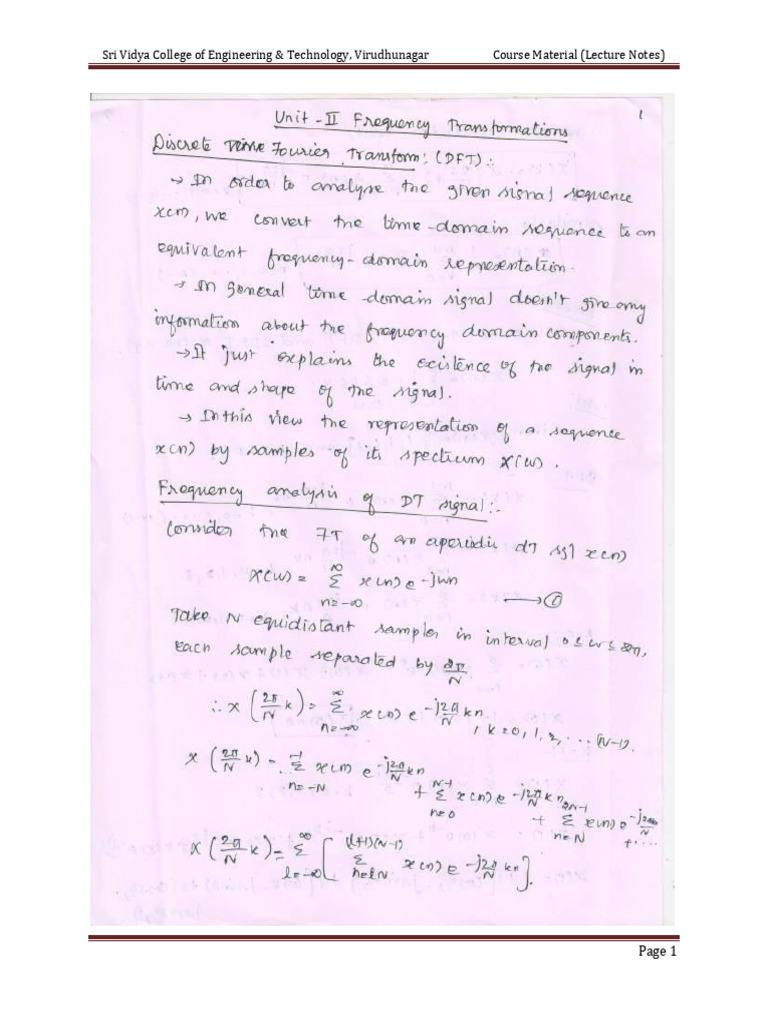 Sri Vidya College of Engineering & Technology, Virudhunagar Course Material (Lecture Notes)
1
Unit - II Frequency Transformations
Discrete Time Fourier Transform: (DFT) :-
→ In order to analyse the given signal sequence
x(n), we convert the time-domain sequence to an
equivalent frequency-domain representation.
→ In general time-domain signal doesn't give any
information about the frequency domain components.
→ It just explains the existence of the signal in
time and shape of the signal.
→ In this view the representation of a sequence
x(n) by samples of its spectrum X(w).
Frequency analysis of DT signal:-
Consider the FT of an aperiodic dT sgl x(n)
X(w) = ∞ Σ n=-∞ x(n) e^-jwn → ①
Take N equidistant samples in interval 0 ≤ w ≤ 2π,
Each sample separated by 2π/N
∴ X(2π/N k) = ∞ Σ n=-∞ x(n) e^-j2π/N kn, k=0, 1, 2, ... (N-1).
X(2π/N k) = ... -1 Σ n=-N x(n) e^-j2π/N kn
+ N-1 Σ n=0 x(n) e^-j2π/N kn
+ 2N-1 Σ n=N x(n) e^-j2π/N
+ ....
X(2π/N k) = ∞ Σ l=-∞ [ (l+1)(N-1) Σ n=lN x(n) e^-j2π/N kn ].
Page 1